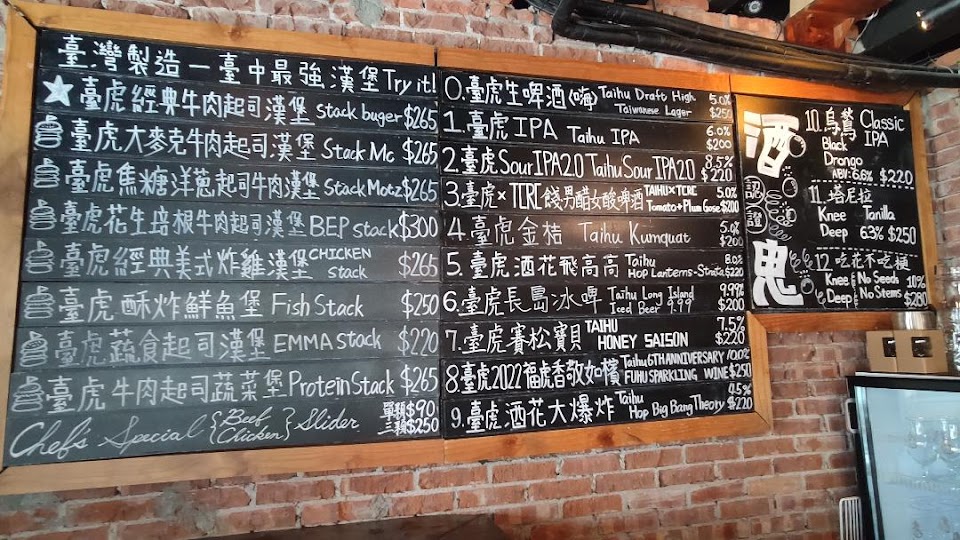 臺灣製造一臺中最強漢堡Try it!
臺虎經典牛肉起司漢堡 Stack buger $265
臺虎大麥克牛肉起司漢堡 Stack Mc $265
臺虎焦糖洋蔥起司牛肉漢堡 Stack Motz $265
臺虎花生培根牛肉起司漢堡 BEP stack $300
臺虎經典美式炸雞漢堡 CHICKEN stack $265
臺虎 酥炸鮮魚堡 Fish Stack $250
臺虎蔬食起司漢堡 EMMA Stack $220
臺虎牛肉起司蔬菜堡 Protein Stack $265
Chef's Special {Beef Chicken} Slider 單顆$90 三顆$250
0.臺虎生啤酒(嗨) Taihu Draft High 5.0%
Taiwanese Lager $250
1.臺虎IPA Taihu IPA 6.0% $200
2.臺虎Sour IPA2.0 Taihu Sour IPA 2.0 8.5% $220
3.臺虎×TCRC餞男醋女酸啤酒 TAIHU×TCRC 5.0%
Tomato+Plum Gose $200
4.臺虎金桔 Taihu Kumquat 5.0% $200
5.臺虎酒花飛高高 Taihu 8.0%
Hop Lanterns-Strata $220
6.臺虎長島冰啤 Taihu Long Island 9.99%
Iced Beer 9.99 $200
7.臺虎賽松寶貝 TAIHU 7.5%
HONEY SAISON $220
8.臺虎2022福虎香敬如檳 Taihu 6TH ANNIVERSARY 10.0%
FUHU SPARKLING WINE $250
9.臺虎酒花大爆炸 Taihu
Hop Big Bang Theory $220
酒
認證
鬼
10.烏鶖 Classic
IPA
Black
Drongo
ABV:6.6% $220
11.塔尼拉
Knee Tanilla
Deep 6.3% $250
12.吃花不吃梗
Knee No Seeds 10%
Deep No Stems $280